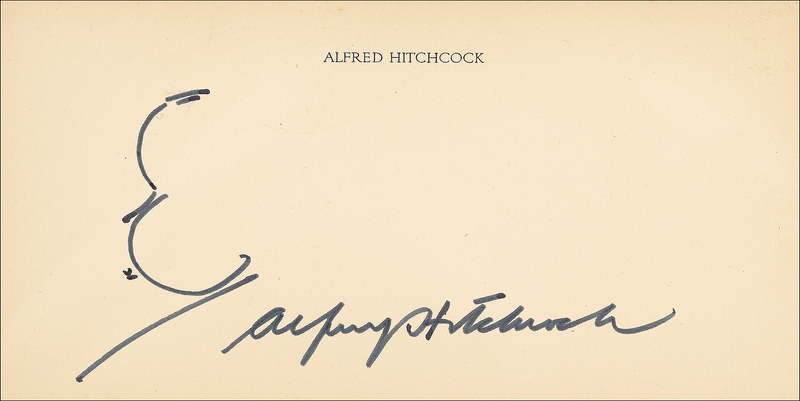 ALFRED HITCHCOCK
Alfred Hitchcock